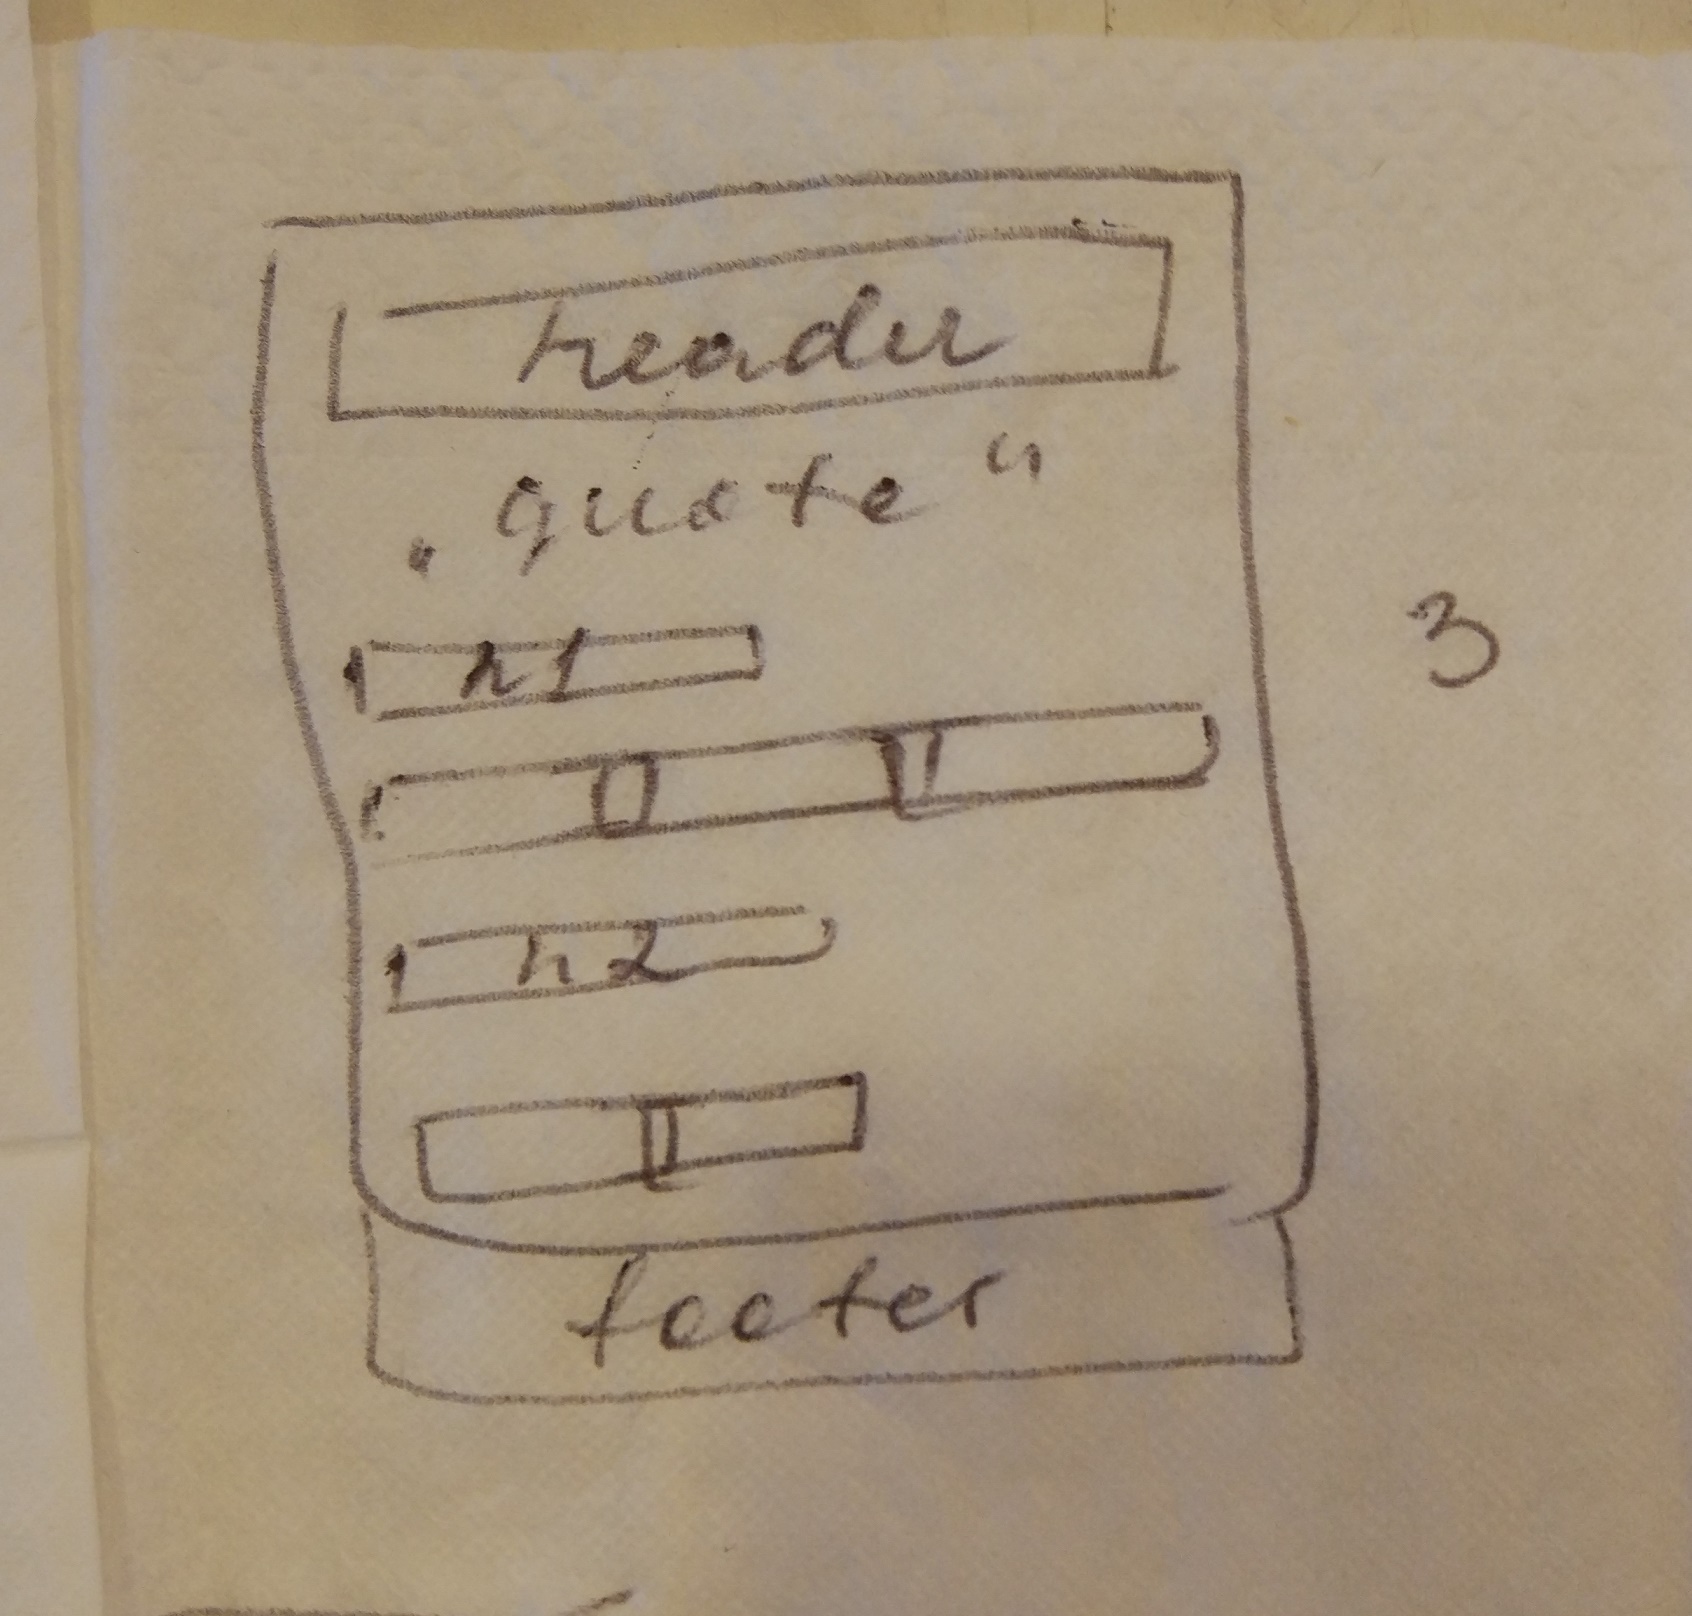 header
„quote“
h1
3
h2
footer